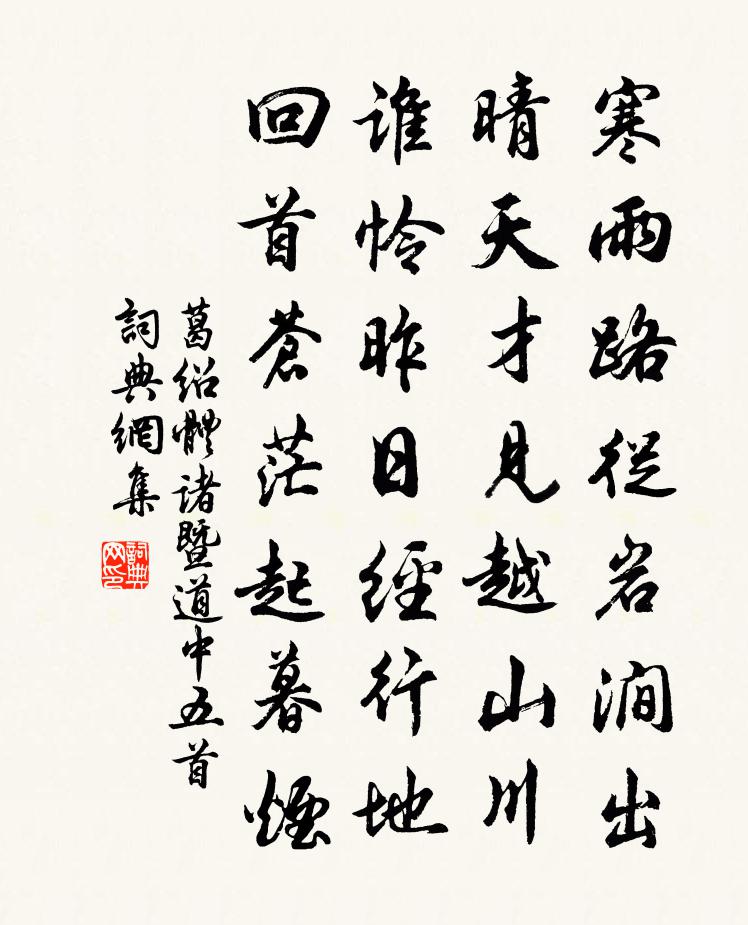 寒雨路從岩澗出
晴天才見越山川
誰怜昨日經行地
回首蒼茫起暮煙
葛紹體諸暨道中五首
詞典網集
詞典网印